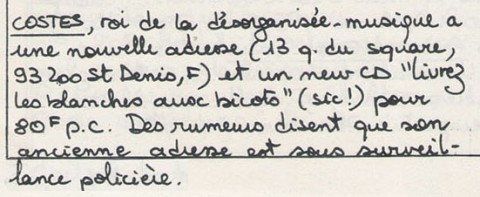 COSTES, roi de la désorganisée-musique a
une nouvelle adresse (13 q. du square,
93200 St Denis, F) et un new CD "livrez
les blanches aux bicots" (sic!) pour
80F p.c. Des rumeurs disent que son
ancienne adresse est sous surveil-
lance policière.